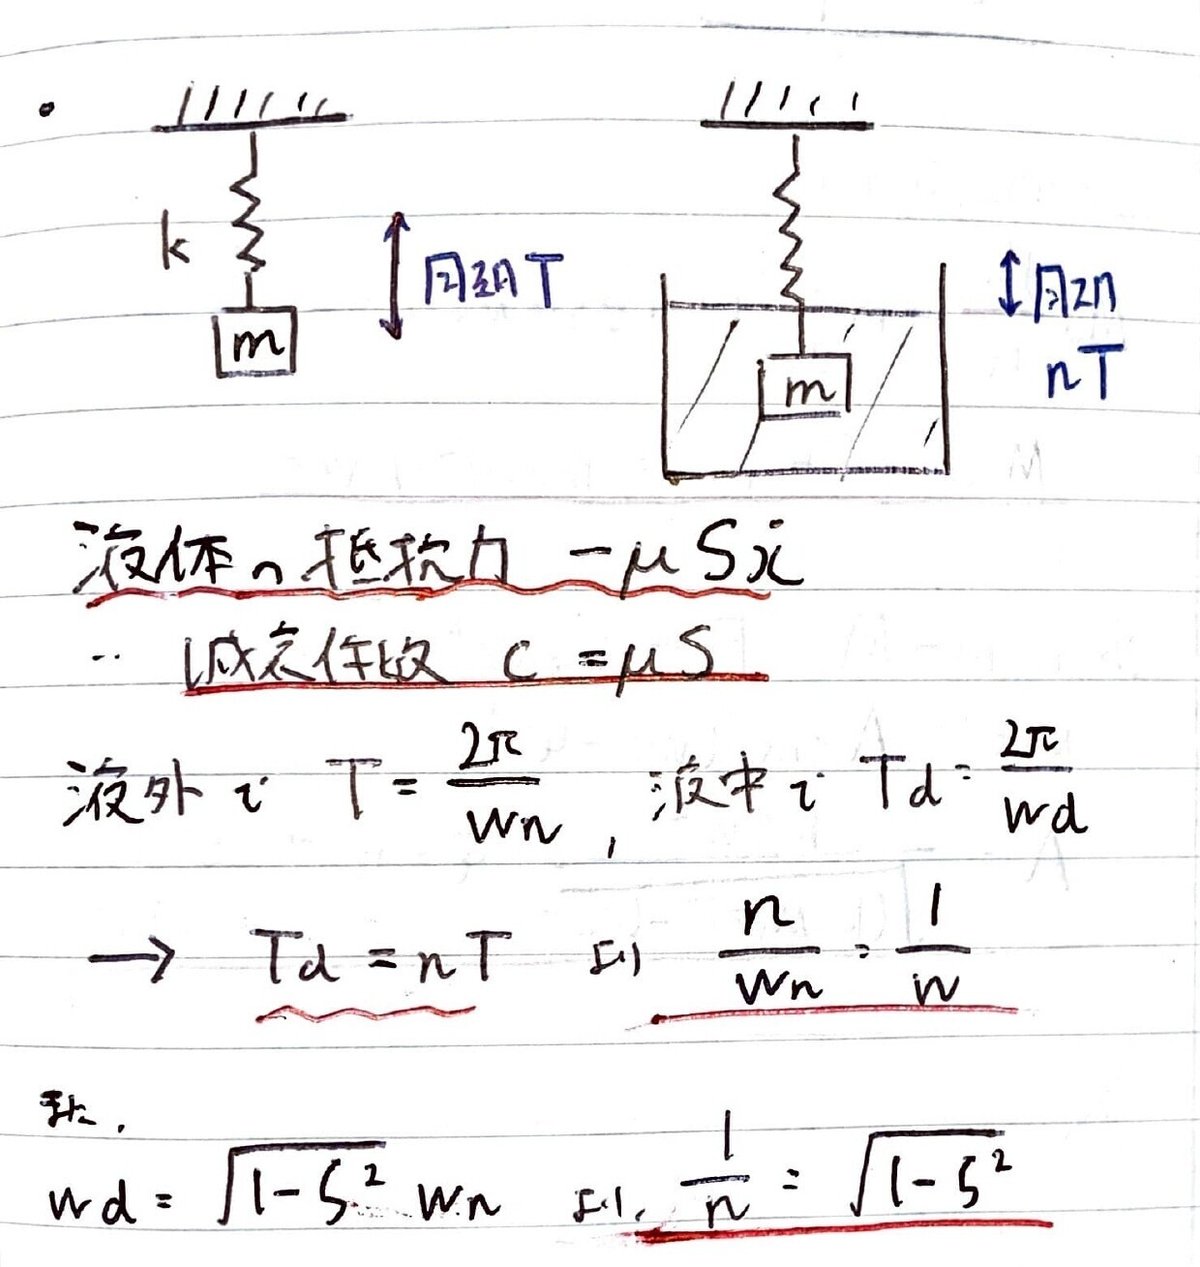 k
m
周期T
m
周期
nT
液体の抵抗力 −μSẋ
‥ 減衰係数 c = μS
液外で T = 2π/wn , 液中で Td = 2π/wd
→ Td = nT より n/wn = 1/w
また,
wd = √(1−ζ²) wn より, 1/n = √(1−ζ²)